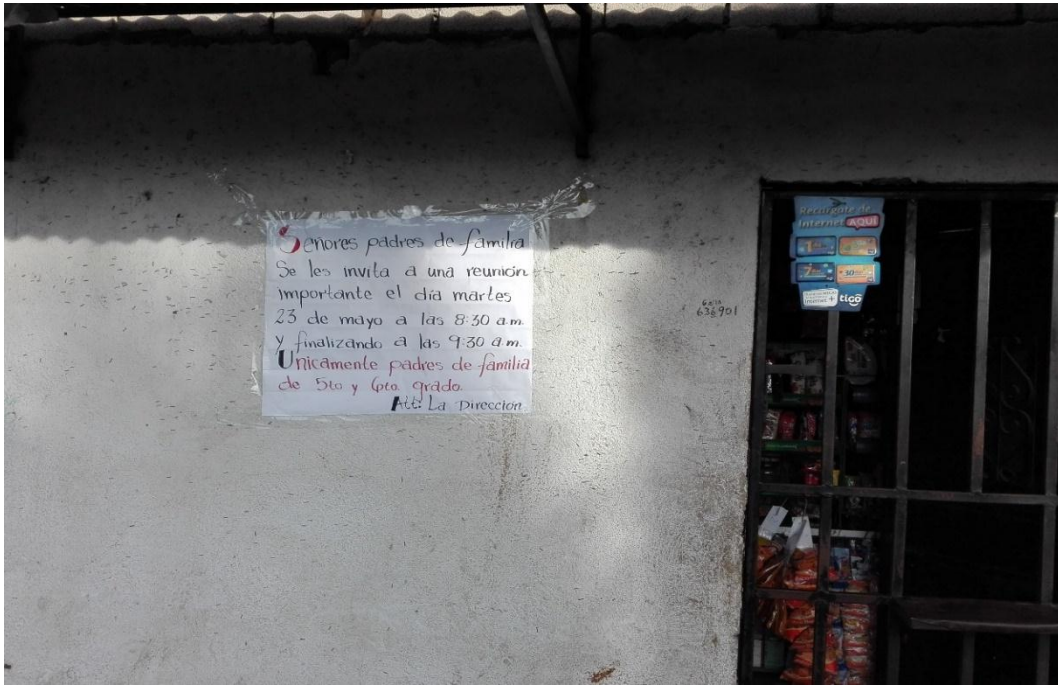 Señores padres de familia
Se les invita a una reunión
importante el día martes
23 de mayo a las 8:30 a.m.
y finalizando a las 9:30 a.m.
Unicamente padres de familia
de 5to y 6to grado.
Att: La Dirección
636901
Recargate de
Internet AQUÍ
1
7
30
tigo